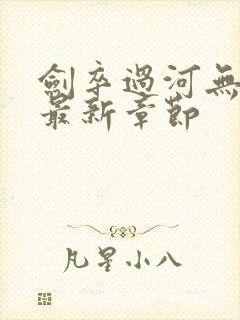 劍卒過河無
最新章節
凡星小八